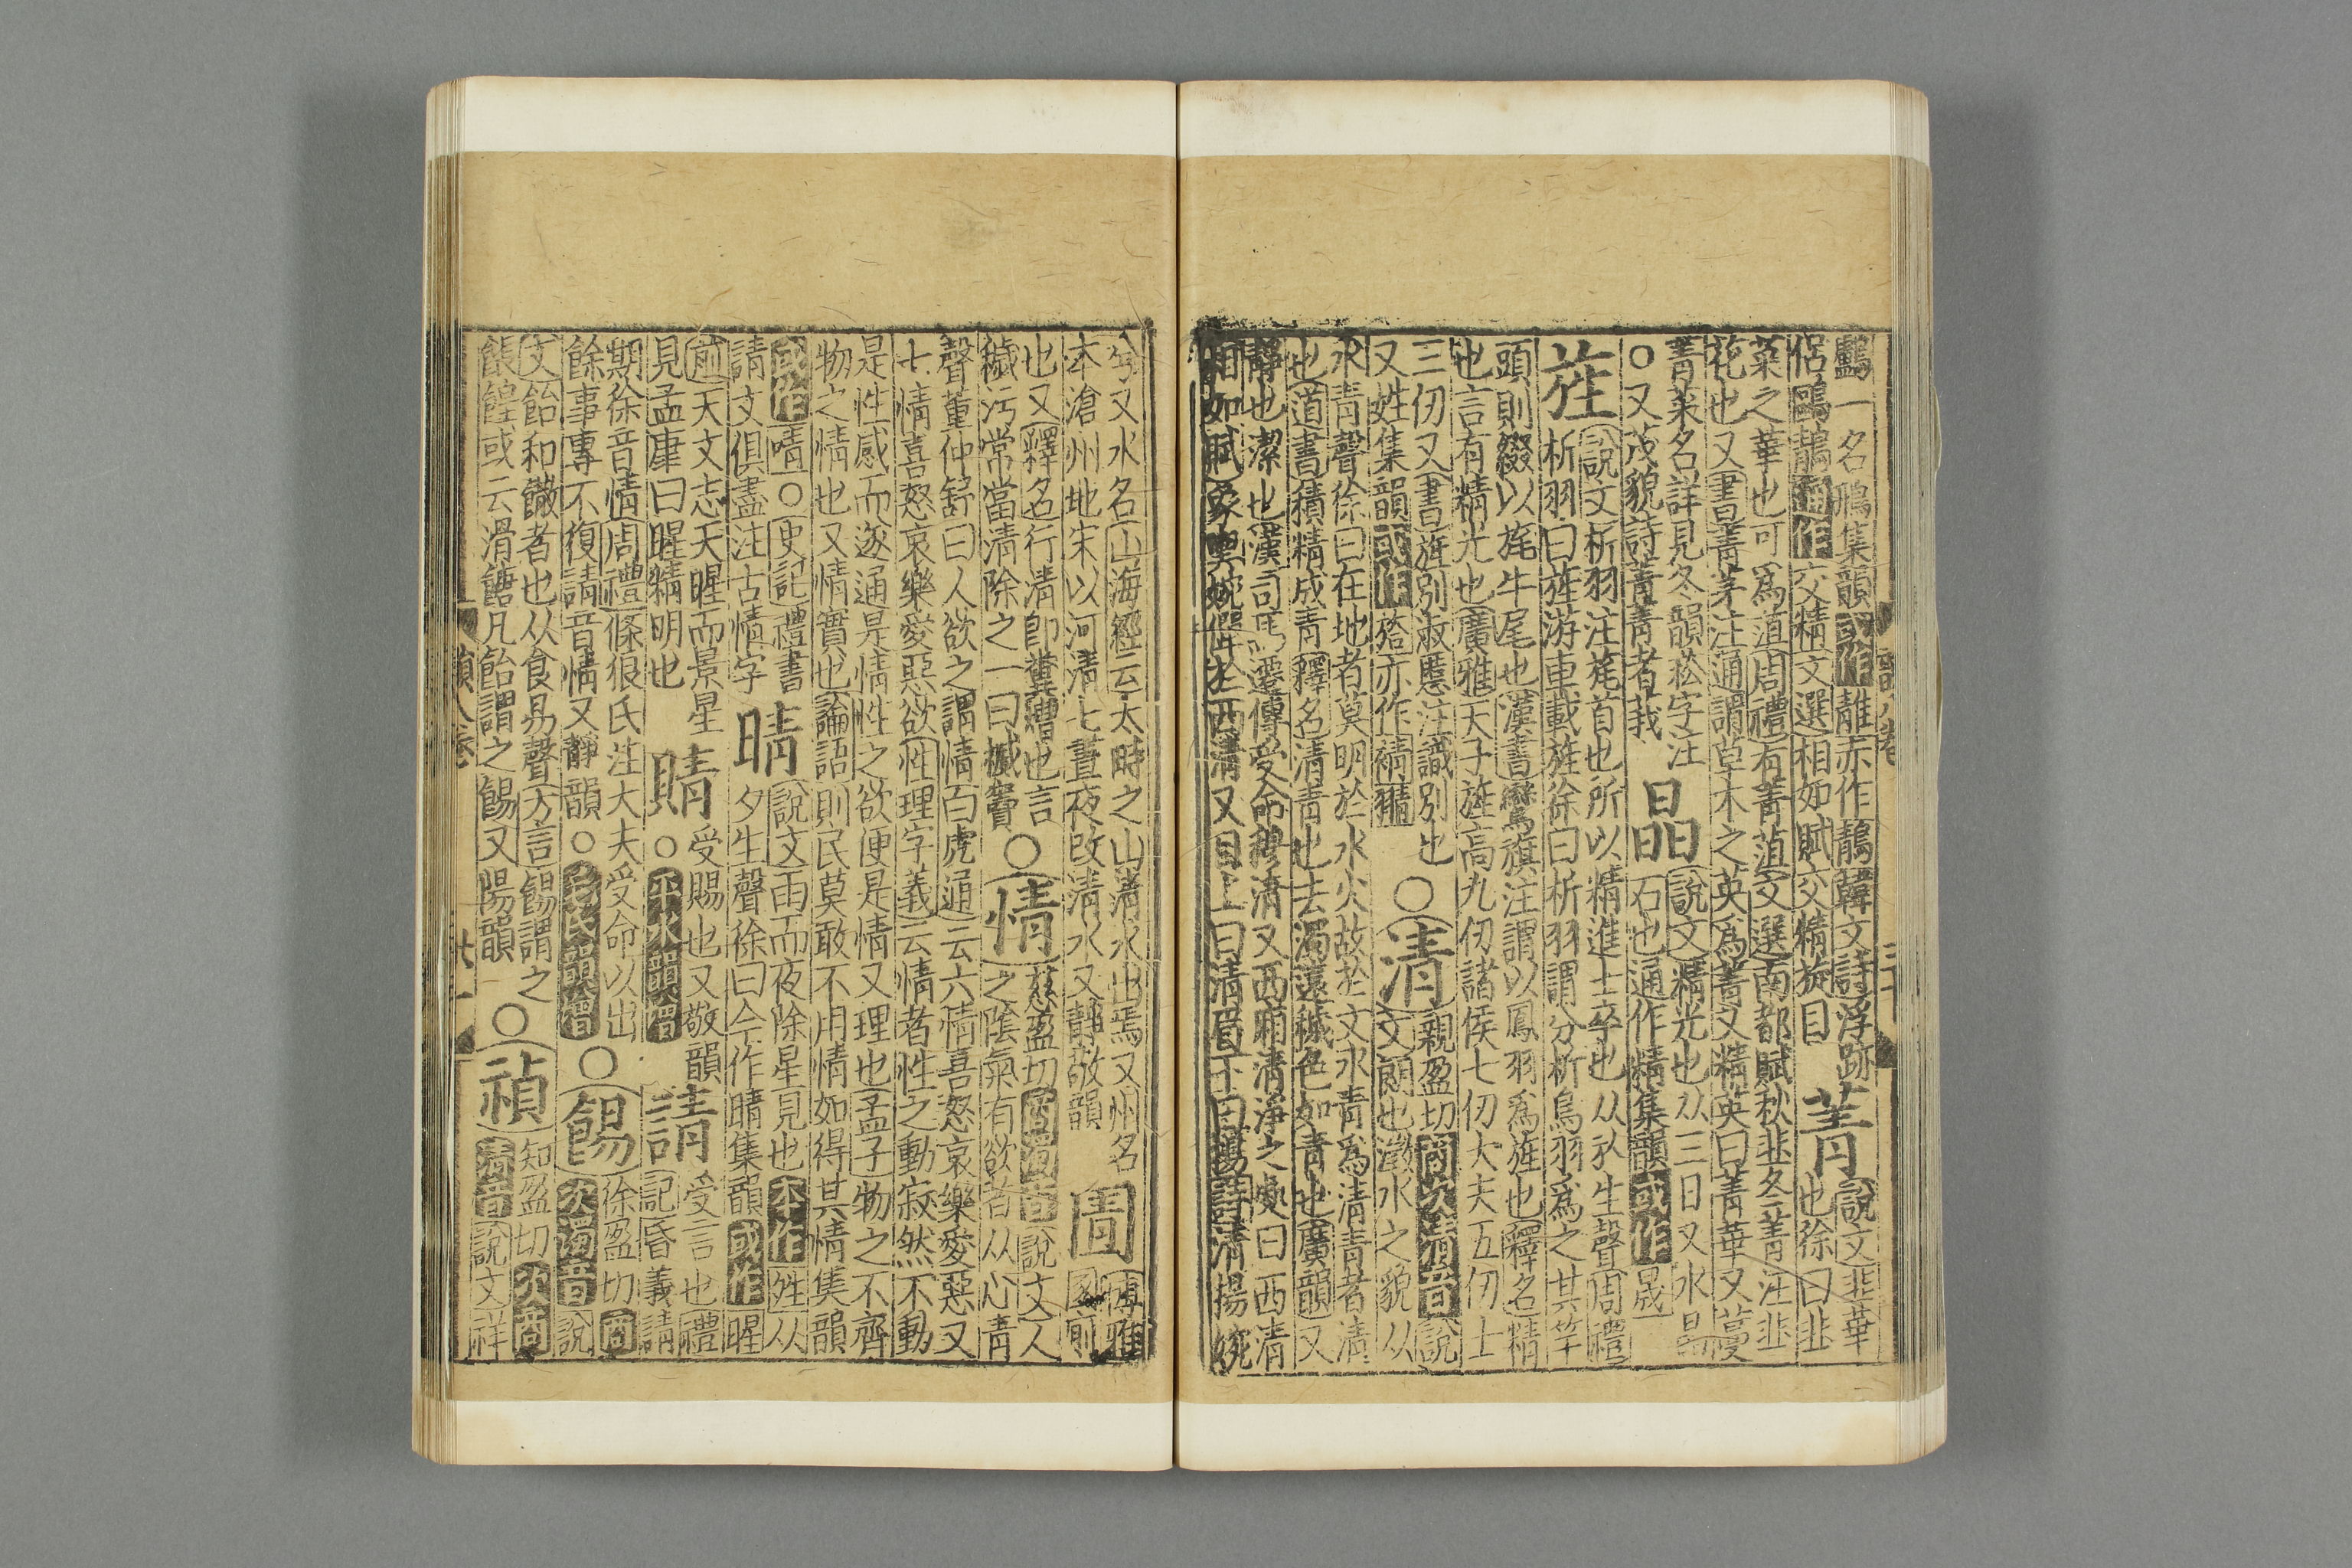 鸕一名鵬集韻或作鶄亦作鶄韓文詩浮跡
侶鷗鶄通作交精文選相如賦交精旋目
菁
說文韭華
也徐曰韭
菜之華也可爲葅周禮有菁葅文選南都賦秋韭冬菁注韭
花也又書菁茅注通謂草木之英爲菁又精英曰菁華又蔓
菁菜名詳見冬韻菘字注
○又茂貌詩菁菁者莪
晶
說文精光也从三日又水晶
石也通作精集韻或作晟
旌
說文析羽注旄首也所以精進士卒也从㫃生聲周禮
析羽曰旌游車載旌徐曰析羽謂分析鳥羽爲之其竿
頭則綴以旄牛尾也漢書鸞旗注謂以鳳羽爲旌也釋名精
也言有精光也廣雅天子旌高九仞諸侯七仞大夫五仞士
三仞又書旌別淑慝注識別也
又姓集韻或作
○清
親盈切商次清音說
文朖也澂水之貌从
水青聲徐曰在地者莫明於水火故於文水青爲清青者清
也道書積精成青釋名清青也去濁遠穢色如青也廣韻又
靜也潔也漢司馬遷傳受命穆清又西廂清淨之處曰西清
相如賦象輿婉僤於西清又目上曰清眉下曰揚詩清揚婉
兮又水名山海經云太時之山清水出焉又州名
本滄州地宋以河清七晝夜改清水又靜敬韻
圊
博雅
圂廁
也又釋名行清卽糞槽也言
穢汚常當清除之一曰槭竇
○情
慈盈切商濁音說文人
之陰氣有欲者从心青
聲董仲舒曰人欲之謂情白虎通云六情喜怒哀樂愛惡又
七情喜怒哀樂愛惡欲性理字義云情者性之動寂然不動
是性感而遂通是情性之欲便是情又理也孟子物之不齊
物之情也又情實也論語則民莫敢不用情如得其情集韻
或作啨○史記禮書
請文俱盡注古情字
晴
說文雨而夜除星見也本作夝从
夕生聲徐曰今作晴集韻或作暒
前天文志天暒而景星
見孟康曰暒精明也
䝼
受賜也又敬韻
○平水韻增
請
受言也禮
記昏義請
期徐音情周禮條狼氏注大夫受命以出
餘事專不復請音情又靜韻○毛氏韻增
○餳
徐盈切商
次濁音說
文飴和饊者也从食昜聲方言餳謂之
餦餭或云滑餹凡飴謂之餳又陽韻
○禎
知盈切次商
清音說文祥